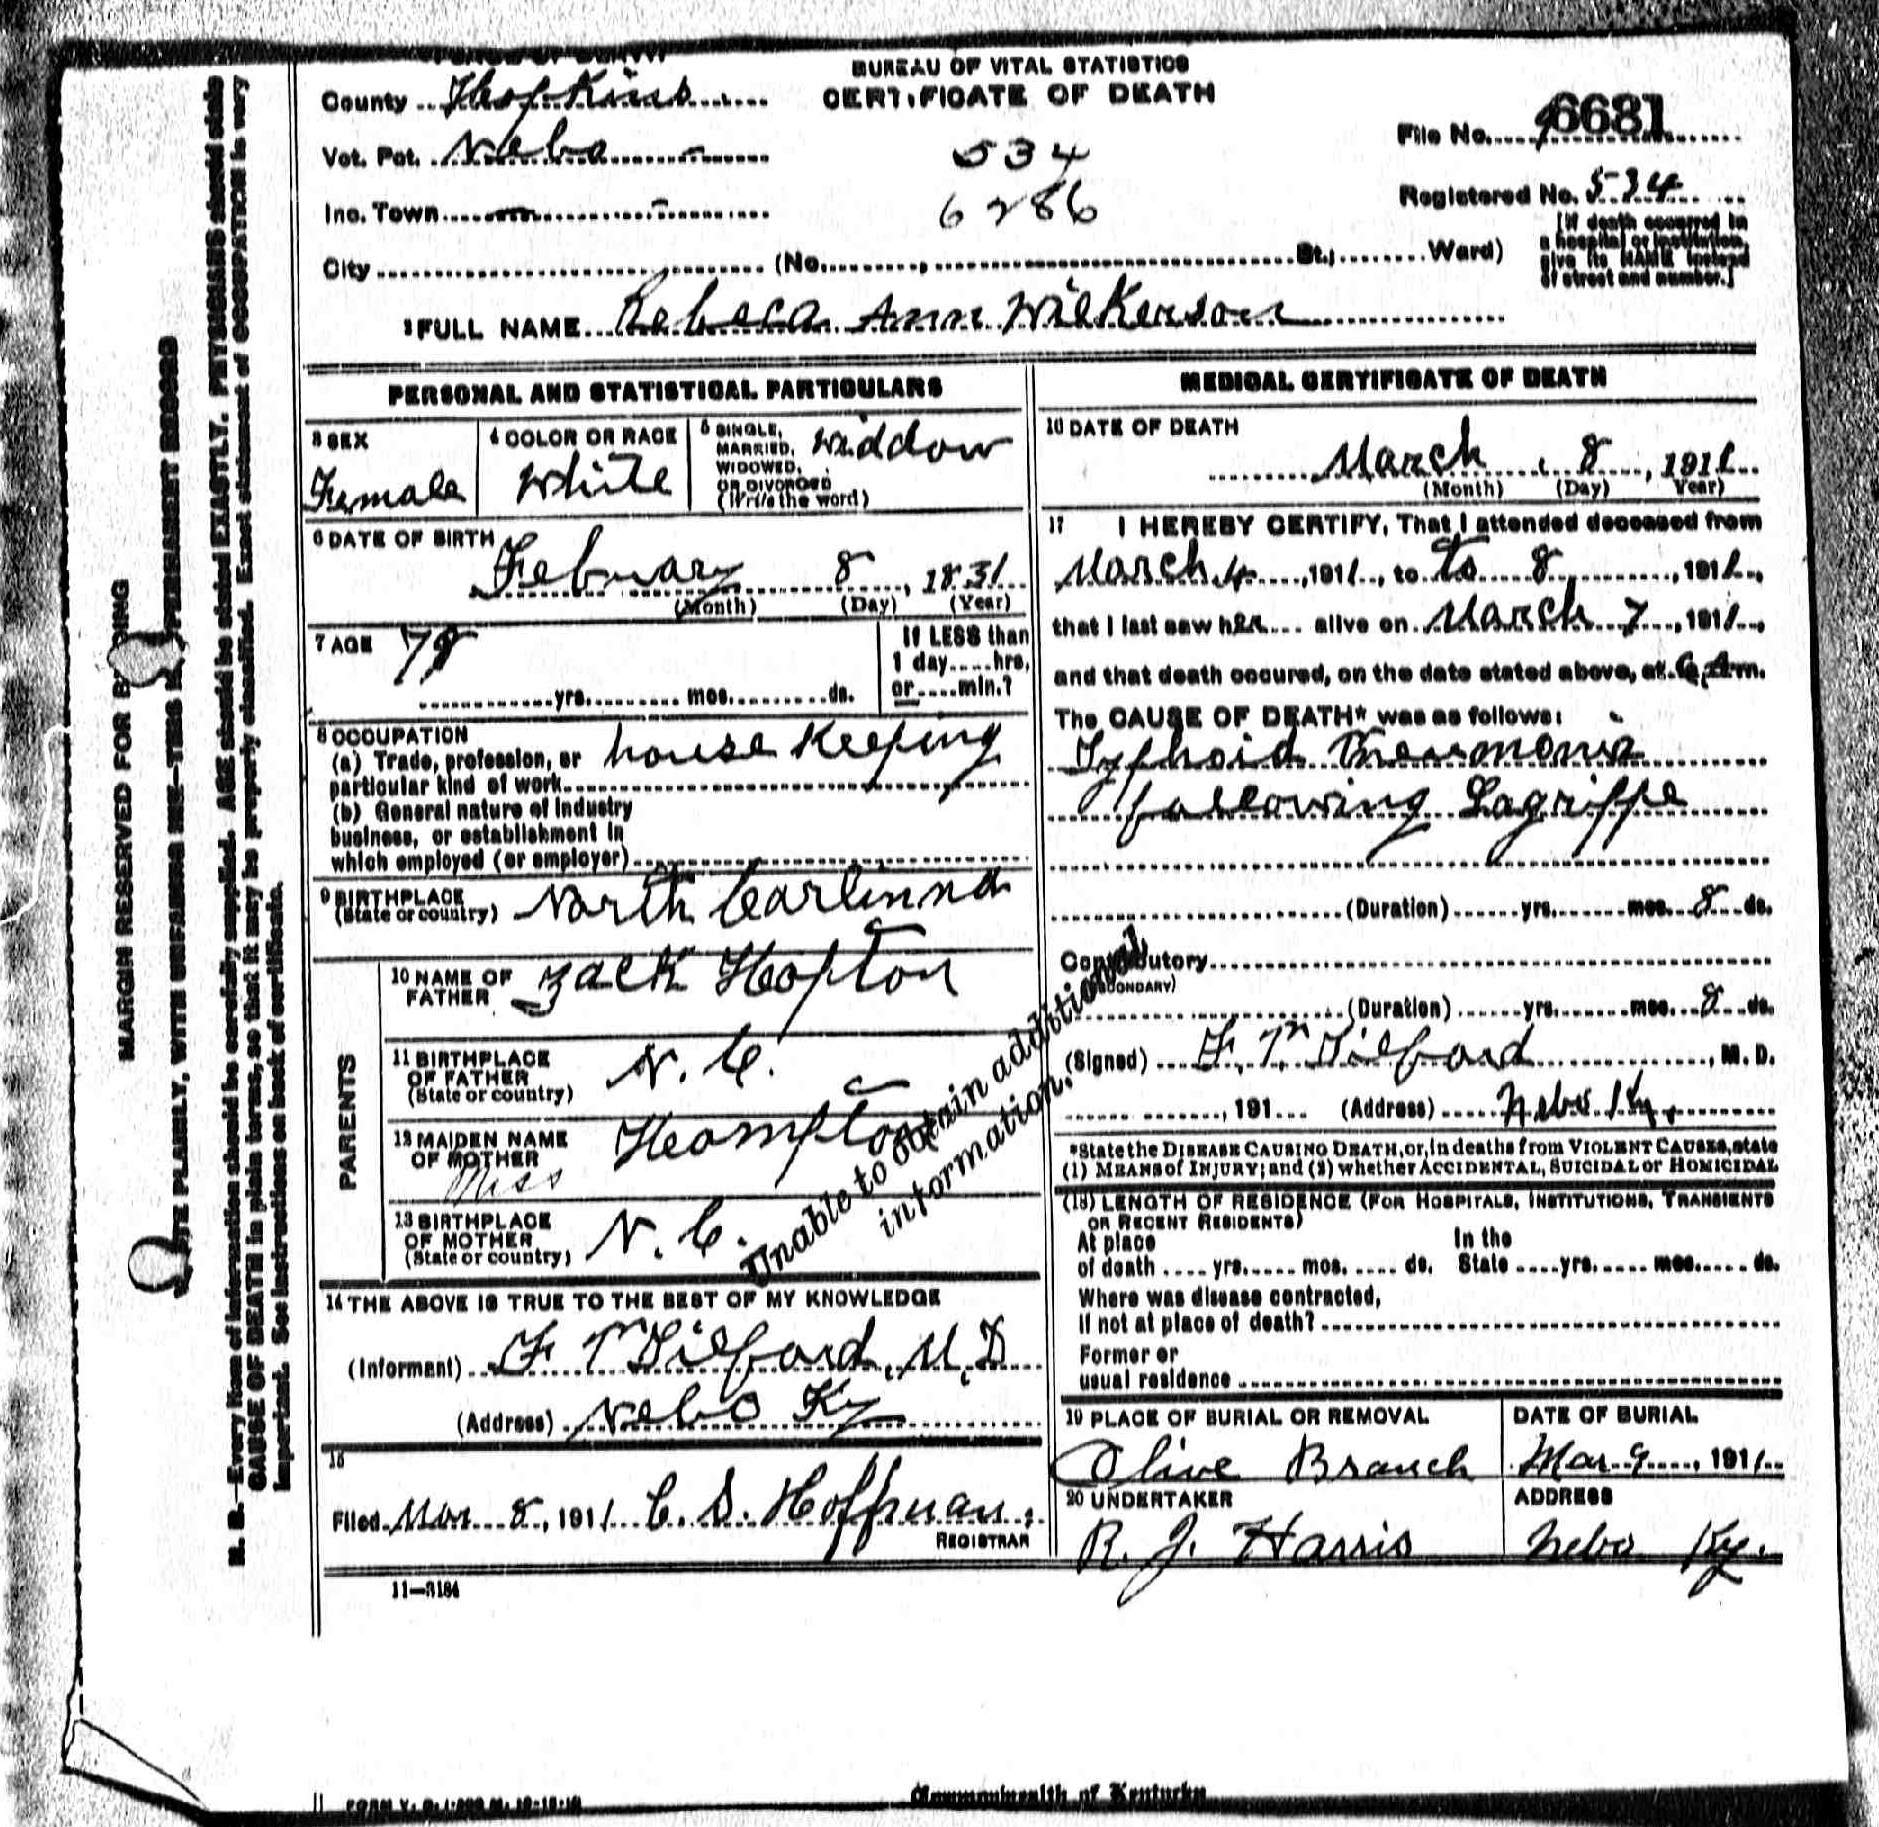 BUREAU OF VITAL STATISTICS
CERTIFICATE OF DEATH
County Hopkins
Vot. Pct. Nebo
Inc. Town
City (No. St.; Ward)
534
6286
File No. 6681
Registered No. 534
[If death occurred in
a hospital or institution,
give its NAME instead
of street and number.]
FULL NAME Rebeca Ann Wilkerson
PERSONAL AND STATISTICAL PARTICULARS
3 SEX
Female
4 COLOR OR RACE
White
5 SINGLE,
MARRIED,
WIDOWED,
OR DIVORCED
(Write the word)
Widdow
6 DATE OF BIRTH
February 8, 1831
(Month) (Day) (Year)
7 AGE
yrs. mos. ds.
If LESS than
1 day hrs.
or min.?
8 OCCUPATION
(a) Trade, profession, or
particular kind of work
house Keeping
(b) General nature of industry
business, or establishment in
which employed (or employer)
9 BIRTHPLACE
(State or country)
North Carlinna
PARENTS
10 NAME OF
FATHER
Zack Hopton
11 BIRTHPLACE
OF FATHER
(State or country)
N. C.
12 MAIDEN NAME
OF MOTHER
Miss Hampton
13 BIRTHPLACE
OF MOTHER
(State or country)
N. C.
Unable to obtain additional
information.
14 THE ABOVE IS TRUE TO THE BEST OF MY KNOWLEDGE
(Informant) M.D
(Address) Nebo Ky
15
Filed Mar 8, 1911 C. S. Hoffman,
REGISTRAR
11—3184
MEDICAL CERTIFICATE OF DEATH
16 DATE OF DEATH
March 8, 1911
(Month) (Day) Year)
17 I HEREBY CERTIFY, That I attended deceased from
March 4, 1911, to to 8, 1911,
that I last saw her alive on March 7, 1911,
and that death occured, on the date stated above, at 6 Am.
The CAUSE OF DEATH* was as follows:
Typhoid Pneumonia
following Lagrippe
(Duration) yrs. mos. 8 ds.
Contributory
(SECONDARY)
(Duration) yrs. mos. 8 ds.
(Signed) , M. D.
, 191 (Address) Nebo Ky.
*State the DISEASE CAUSING DEATH, or, in deaths from VIOLENT CAUSES, state
(1) MEANS of INJURY; and (2) whether ACCIDENTAL, SUICIDAL or HOMICIDAL
(18) LENGTH OF RESIDENCE (FOR HOSPITALS, INSTITUTIONS, TRANSIENTS
OR RECENT RESIDENTS)
At place In the
of death yrs. mos. ds. State yrs. mos. ds.
Where was disease contracted,
if not at place of death?
Former or
usual residence
19 PLACE OF BURIAL OR REMOVAL
Olive Branch
DATE OF BURIAL
Mar 9, 1911
20 UNDERTAKER
R. J. Harris
ADDRESS
Nebo Ky.
MARGIN RESERVED FOR BINDING
WRITE PLAINLY, WITH UNFADING INK—THIS IS A PERMANENT RECORD
N. B.—Every item of information should be carefully supplied. AGE should be stated EXACTLY. PHYSICIANS should state
CAUSE OF DEATH in plain terms, so that it may be properly classified. Exact statement of OCCUPATION is very
important. See instructions on back of certificate.
Commonwealth of Kentucky